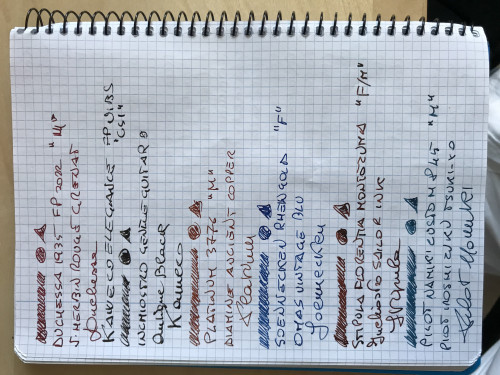 DUCHESSA 1935 FP 2022 "M"
J. HERBIN ROUGE GRENAT
Duchessa
KAWECO ELEGANCE FPNIBS
"CSI"
INCHIOSTRO GENTLE GUITAR
Antique Black
Kaweco
PLATINUM 3776 "M"
DIAMINE ANCIENT COPPER
Platinum
SOENNECKEN RHEINGOLD "F"
OMAS VINTAGE BLU
Soennecken
STIPULA FLORENTIA MONTEZUMA "F/M"
Inchiostro SAILOR INK
Stipula
PILOT NAMIKI CUSTOM 845 "M"
PILOT IROSHIZUKU TSUKI-YO
Pilot Namiki